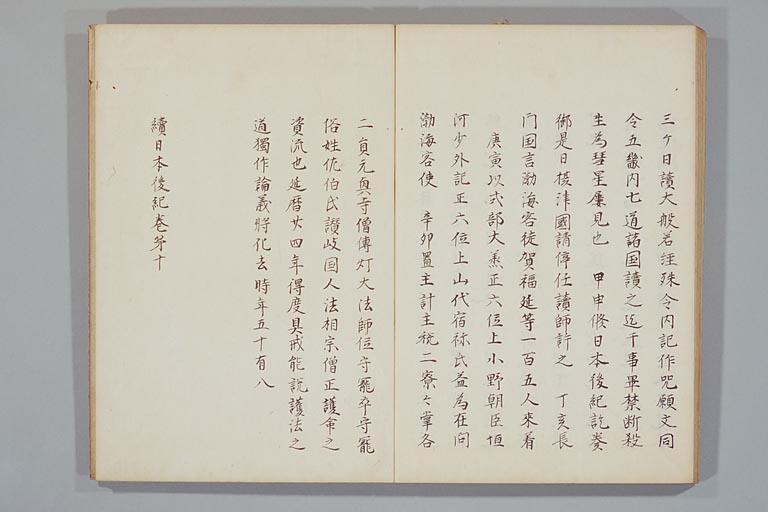 三ケ日讀大般若経殊令内記作咒願文同
令五畿内七道諸国讀之迄于事畢禁断殺
生為彗星屢見也　甲申修日本後紀訖奏
御是日摂津國請停任讀師許之　丁亥長
門国言渤海客徒賀福延等一百五人来着
庚寅以式部大丞正六位上小野朝臣恒
河少外記正六位上山代宿祢氏益為在問
渤海客使　辛卯置主計主税二寮々掌各
二負元興寺僧傳灯大法師位守寵卒守寵
俗姓佐伯氏讃岐国人法相宗僧正護命之
資流也延暦廿四年得度具戒能説護法之
道獨作論義将化去時年五十有八
續日本後紀巻第十